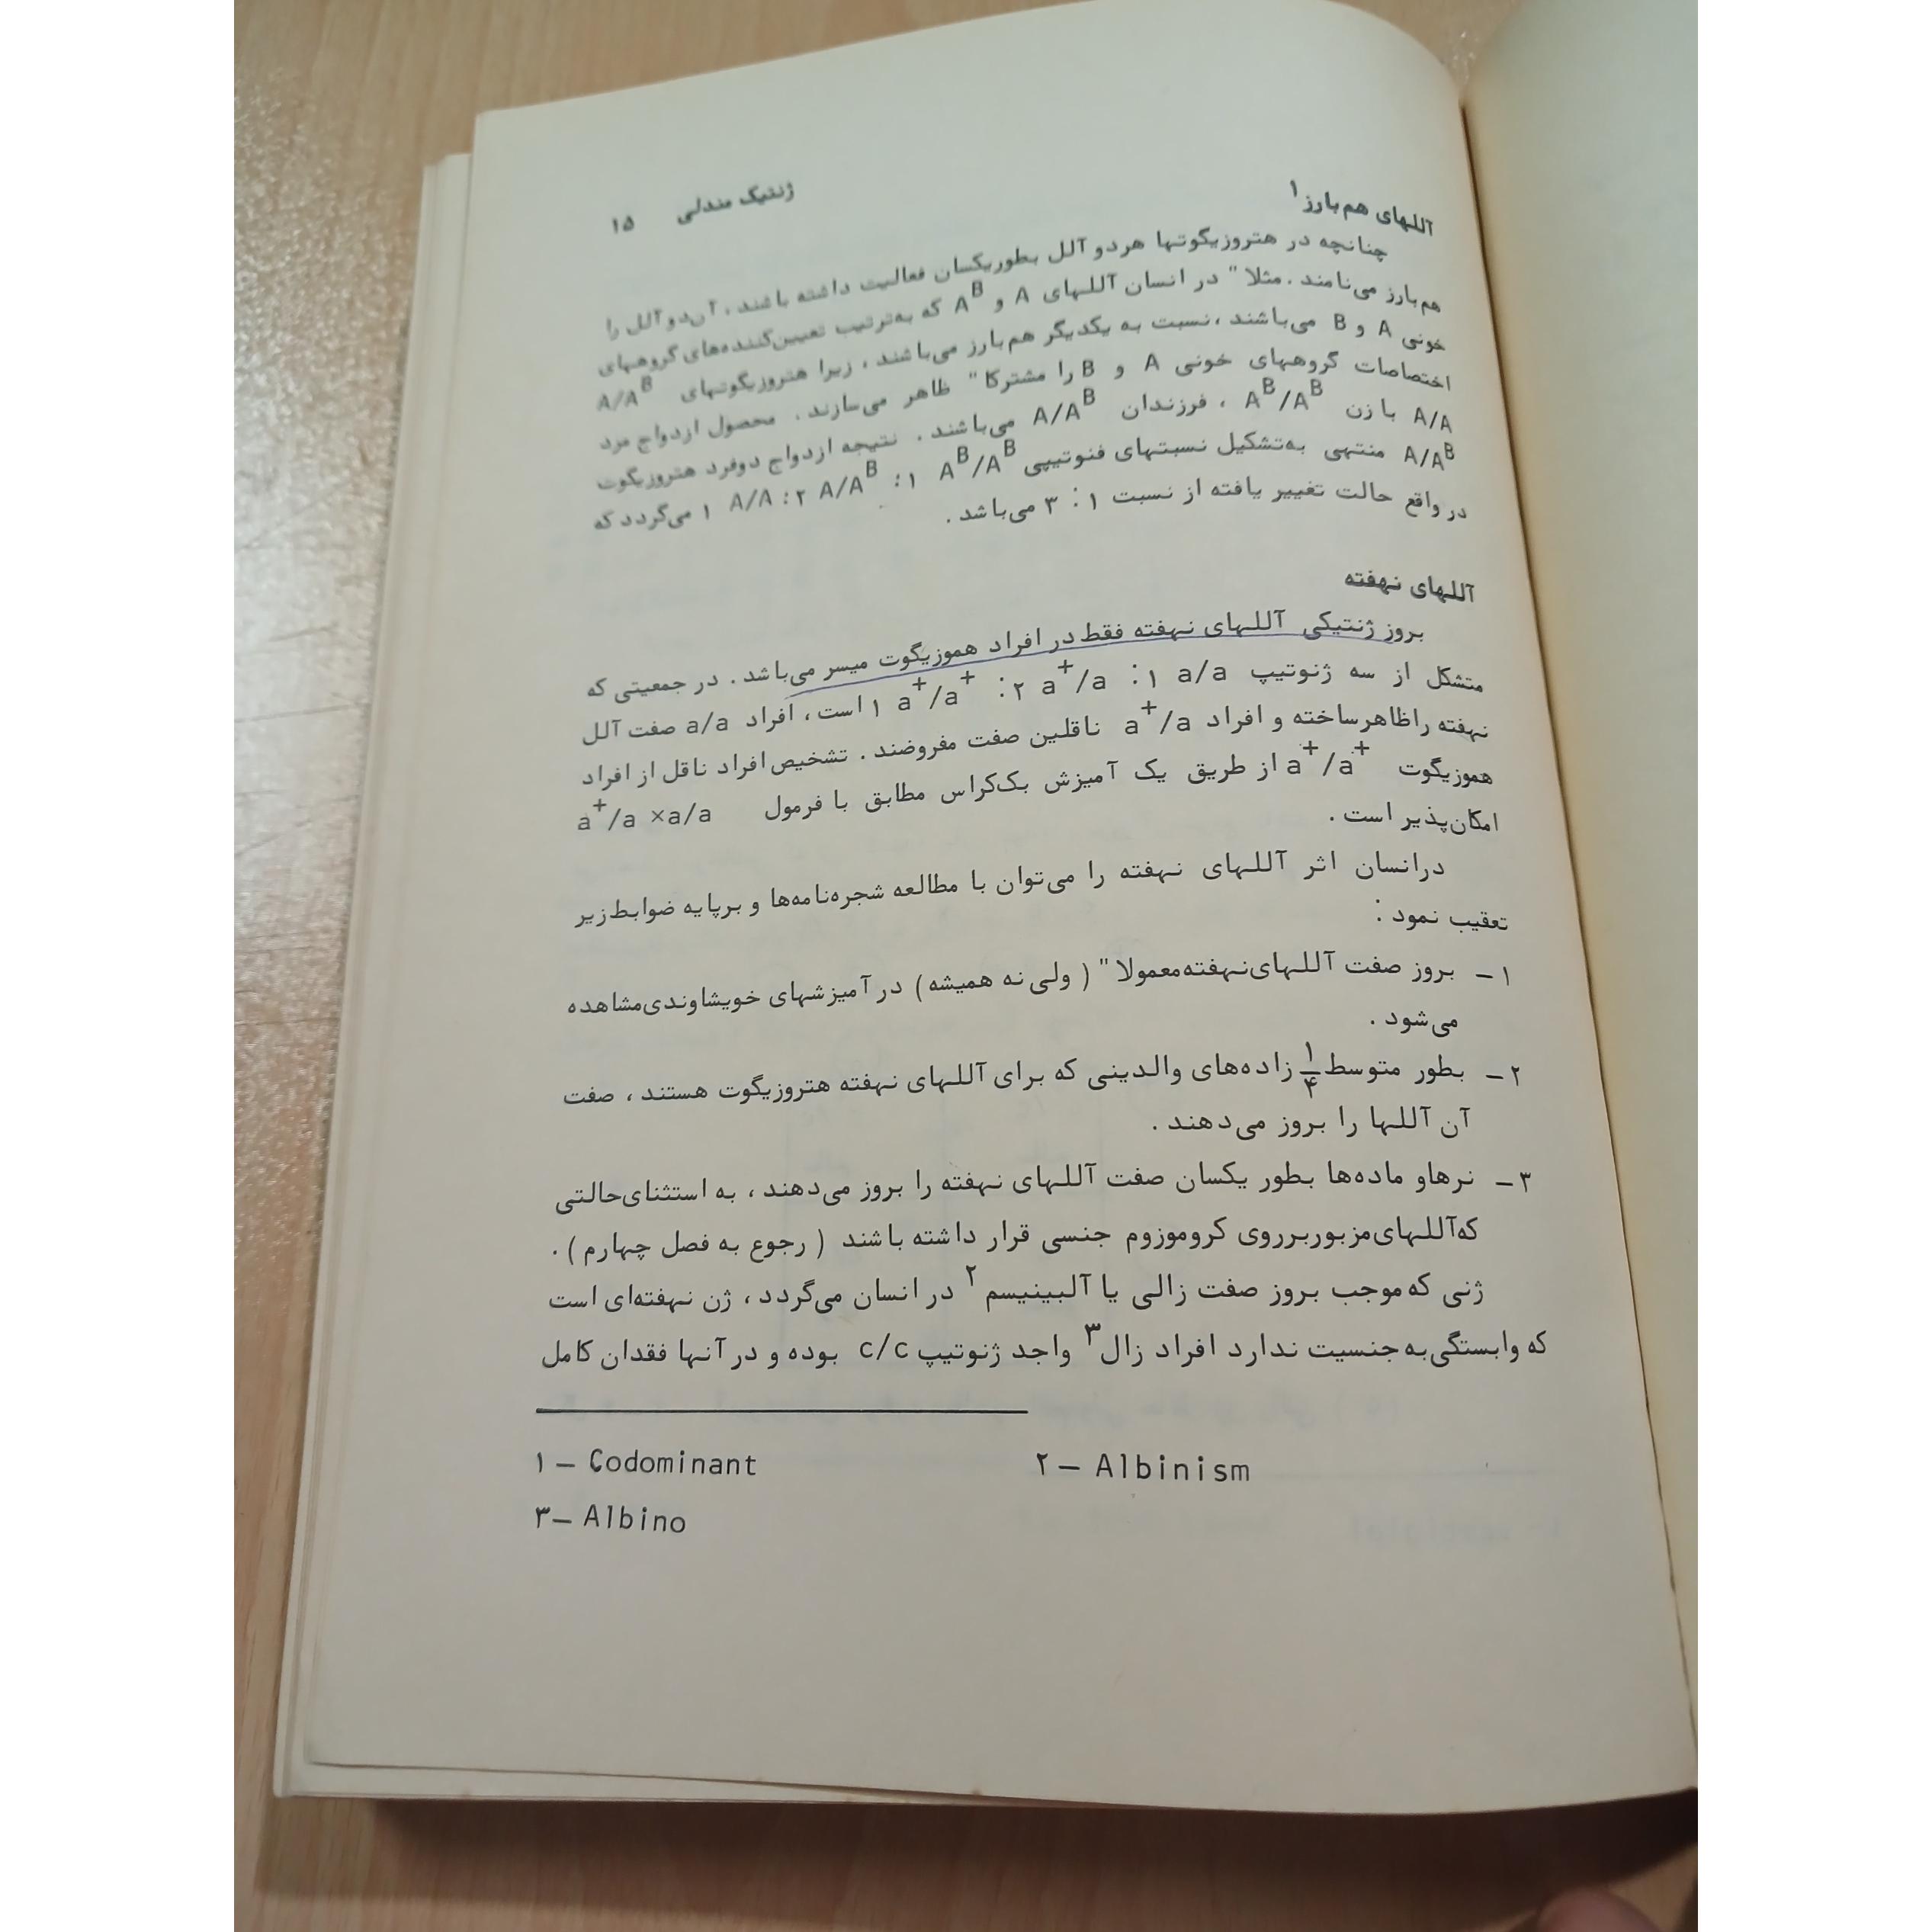 ژنتیک مندلی ۱۵
آللهای هم‌بارز۱
چنانچه در هتروزیگوتها هردو آلل بطوریکسان فعالیت داشته باشند، آن‌دو آلل را
هم‌بارز می‌نامند. مثلا" در انسان آللهای A و A^B که به‌ترتیب تعیین‌کننده‌های گروههای
خونی A و B می‌باشند، نسبت به یکدیگر هم‌بارز می‌باشند، زیرا هتروزیگوتهای A/A^B
اختصاصات گروههای خونی A و B را مشترکا" ظاهر می‌سازند. محصول ازدواج مرد
A/A با زن A^B/A^B، فرزندان A/A^B می‌باشند. نتیجه ازدواج دوفرد هتروزیگوت
A/A^B منتهی به‌تشکیل نسبتهای فنوتیپی ۱ A^B/A^B : ۲ A/A^B : ۱ A/A می‌گردد که
در واقع حالت تغییر یافته از نسبت ۱ : ۳ می‌باشد.
آللهای نهفته
بروز ژنتیکی آللهای نهفته فقط در افراد هموزیگوت میسر می‌باشد. در جمعیتی که
متشکل از سه ژنوتیپ ۱ a/a : ۲ a⁺/a : ۱ a⁺/a⁺ است، افراد a/a صفت آلل
نهفته راظاهرساخته و افراد a⁺/a ناقلین صفت مفروضند. تشخیص افراد ناقل از افراد
هموزیگوت a⁺/a⁺ از طریق یک آمیزش بک‌کراس مطابق با فرمول a⁺/a ×a/a
امکان‌پذیر است.
درانسان اثر آللهای نهفته را می‌توان با مطالعه شجره‌نامه‌ها و برپایه ضوابط‌زیر
تعقیب نمود :
۱ – بروز صفت آللهای‌نهفته‌معمولا" ( ولی نه همیشه) در آمیزشهای خویشاوندی‌مشاهده
می‌شود.
۲ – بطور متوسط ۱/۴ زاده‌های والدینی که برای آللهای نهفته هتروزیگوت هستند، صفت
آن آللها را بروز می‌دهند.
۳ – نرهاو ماده‌ها بطور یکسان صفت آللهای نهفته را بروز می‌دهند، به استثنای‌حالتی
که‌آللهای‌مزبوربرروی کروموزوم جنسی قرار داشته باشند ( رجوع به فصل چهارم ).
ژنی که موجب بروز صفت زالی یا آلبینیسم۲ در انسان می‌گردد، ژن نهفته‌ای است
که وابستگی‌به جنسیت ندارد افراد زال۳ واجد ژنوتیپ c/c بوده و در آنها فقدان کامل
۱ – Codominant ۲ – Albinism
۳ – Albino